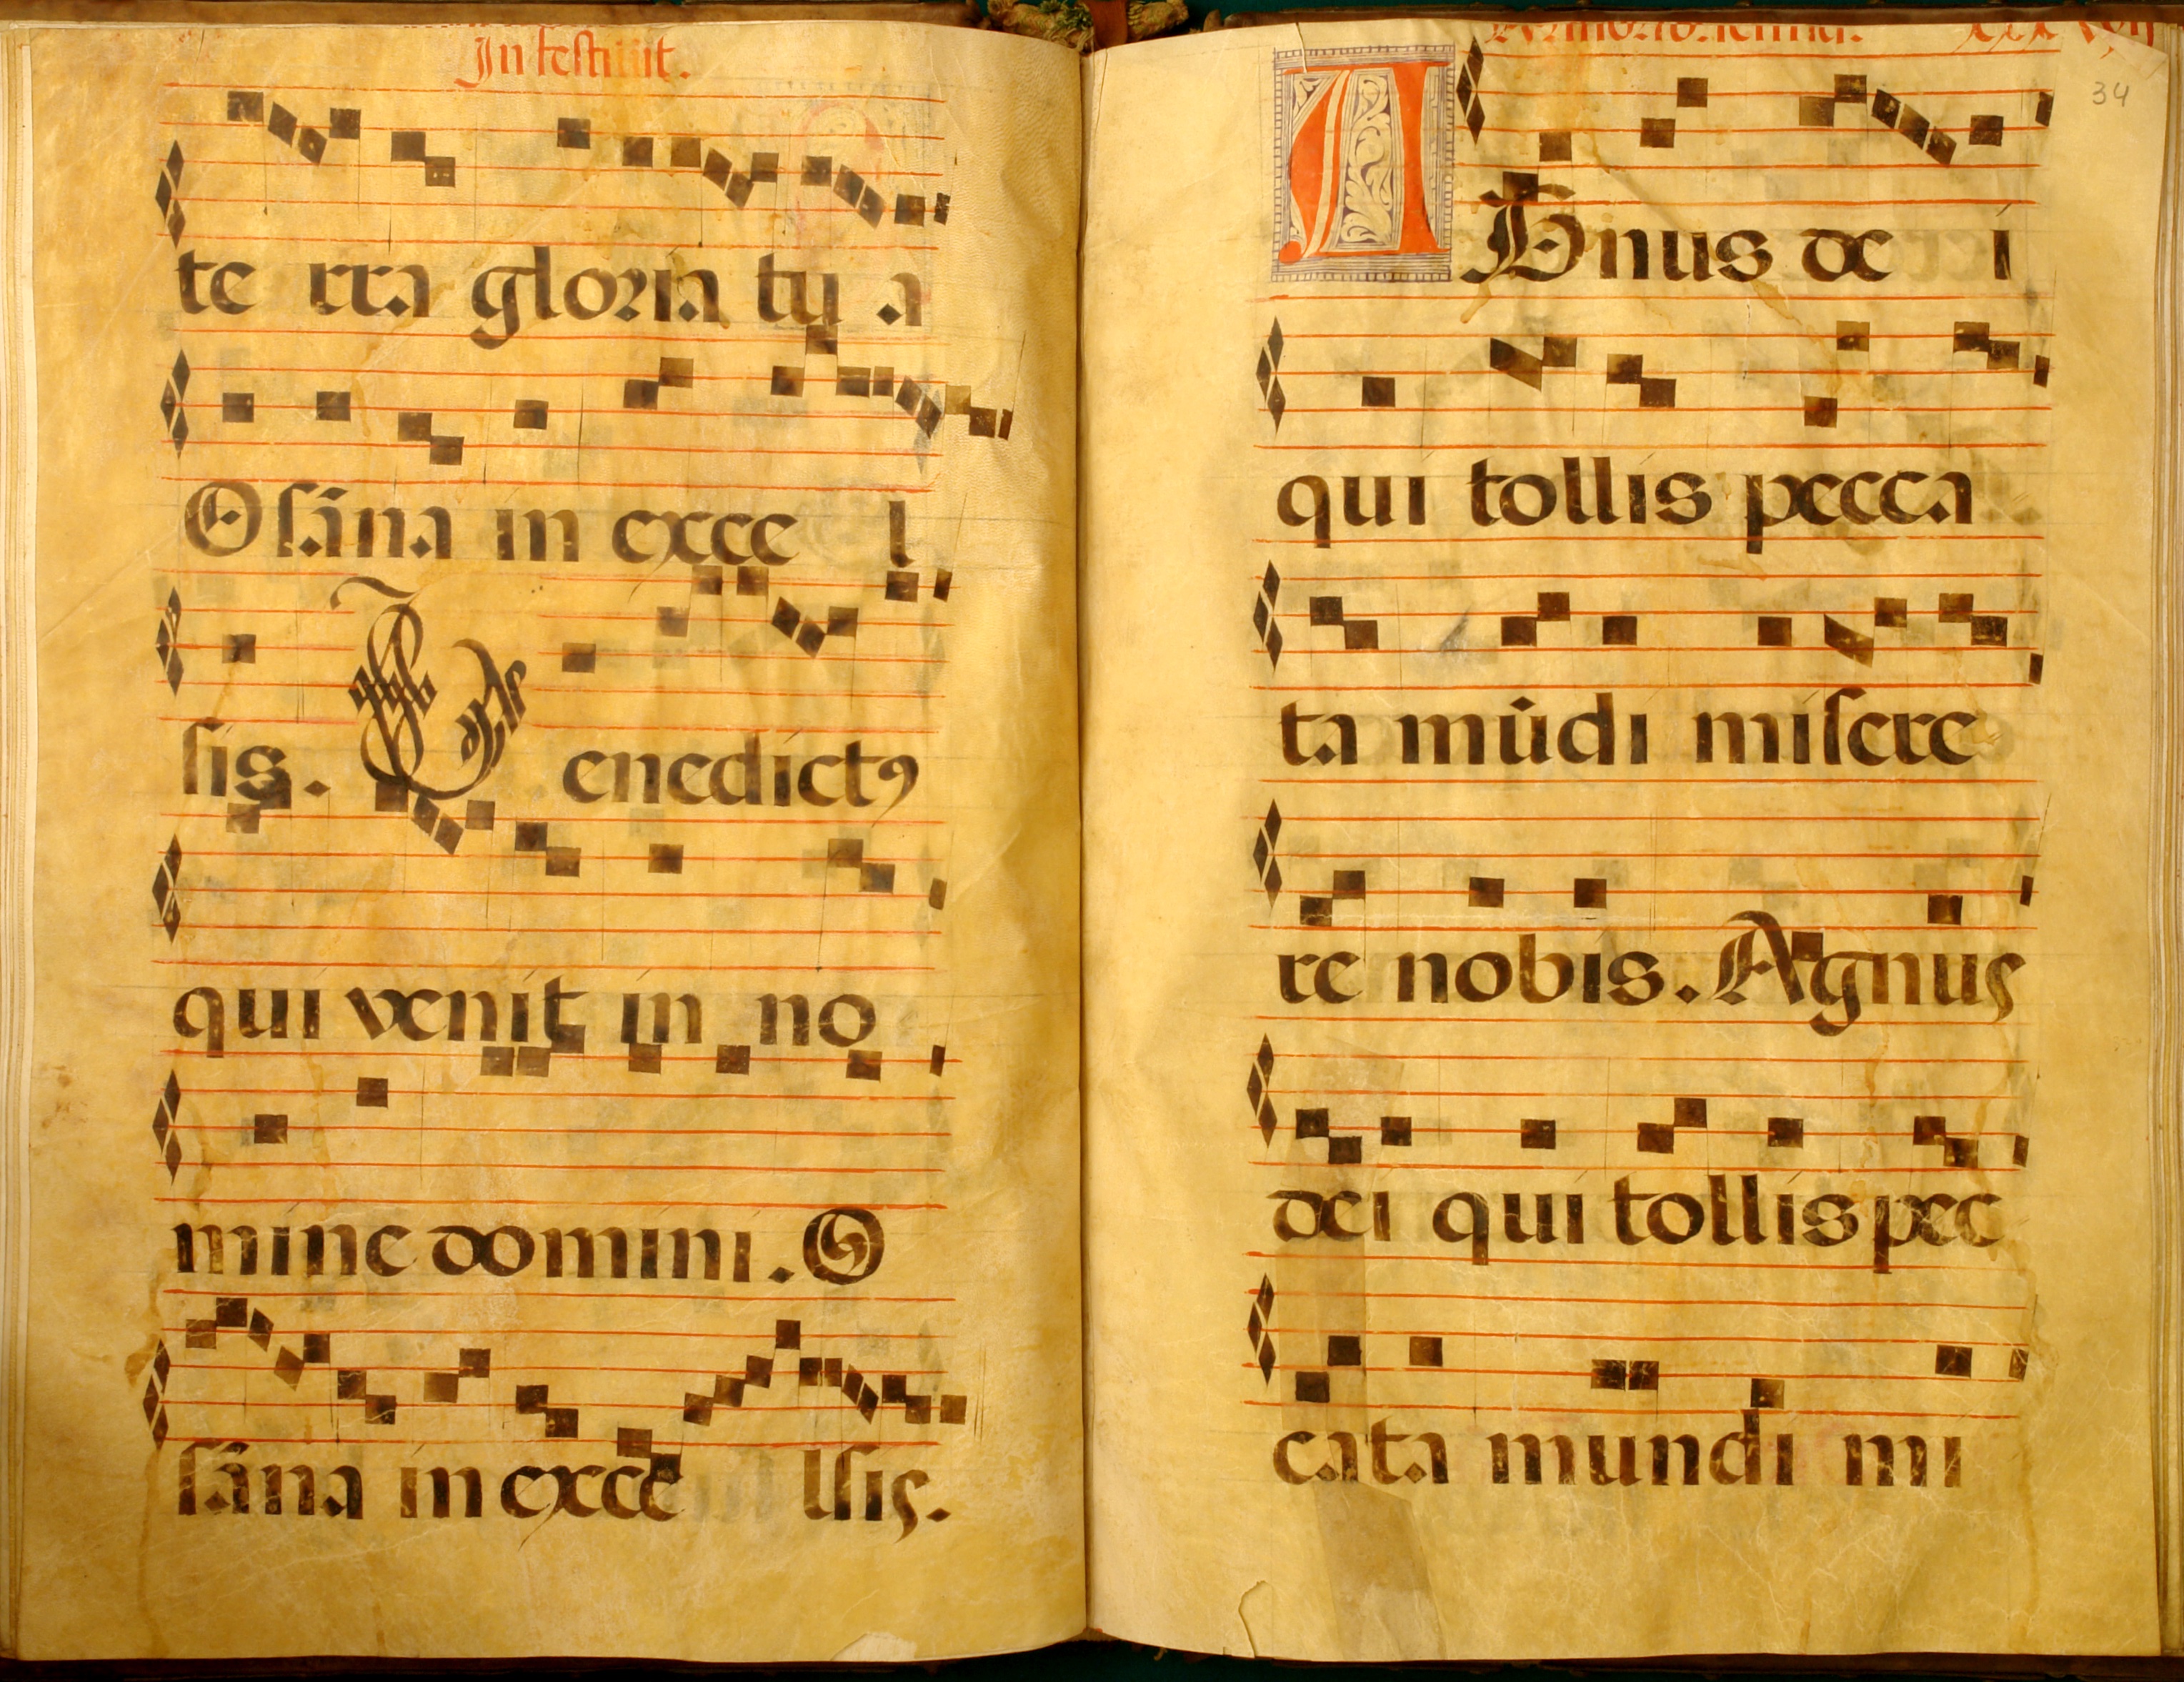 In festiuit.
te rra gloria tu a
Osāna in exce l
sis. Benedictꝰ
qui venit in no
mine domini. O
sāna in exce lsis.
34
AGnus de i
qui tollis pecca
ta mūdi misere
re nobis. Agnus
dei qui tollis pec
cata mundi mi